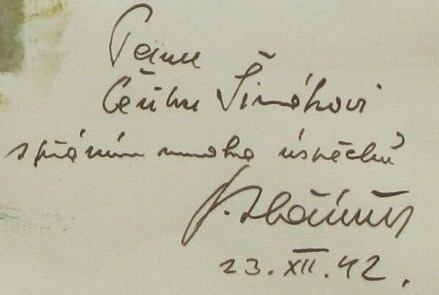 Panu
Čeňku Šimákovi
s přáním mnoha úspěchů
23.XII.42.